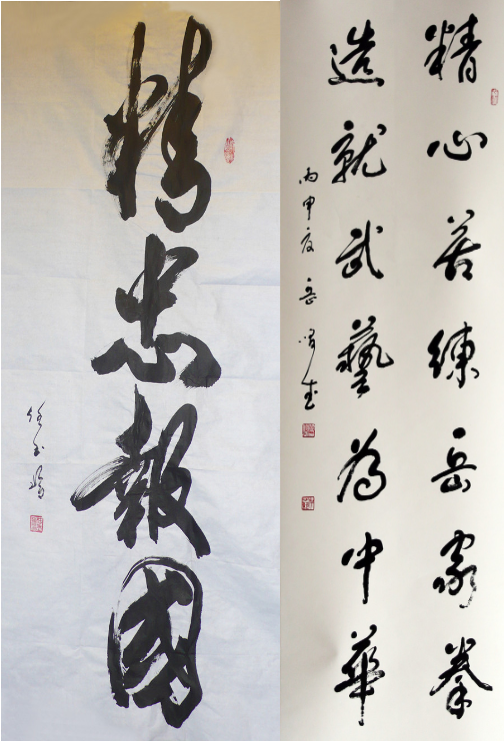 精忠報國
精心苦練岳家拳
造就武藝為中華
丙申度 岳